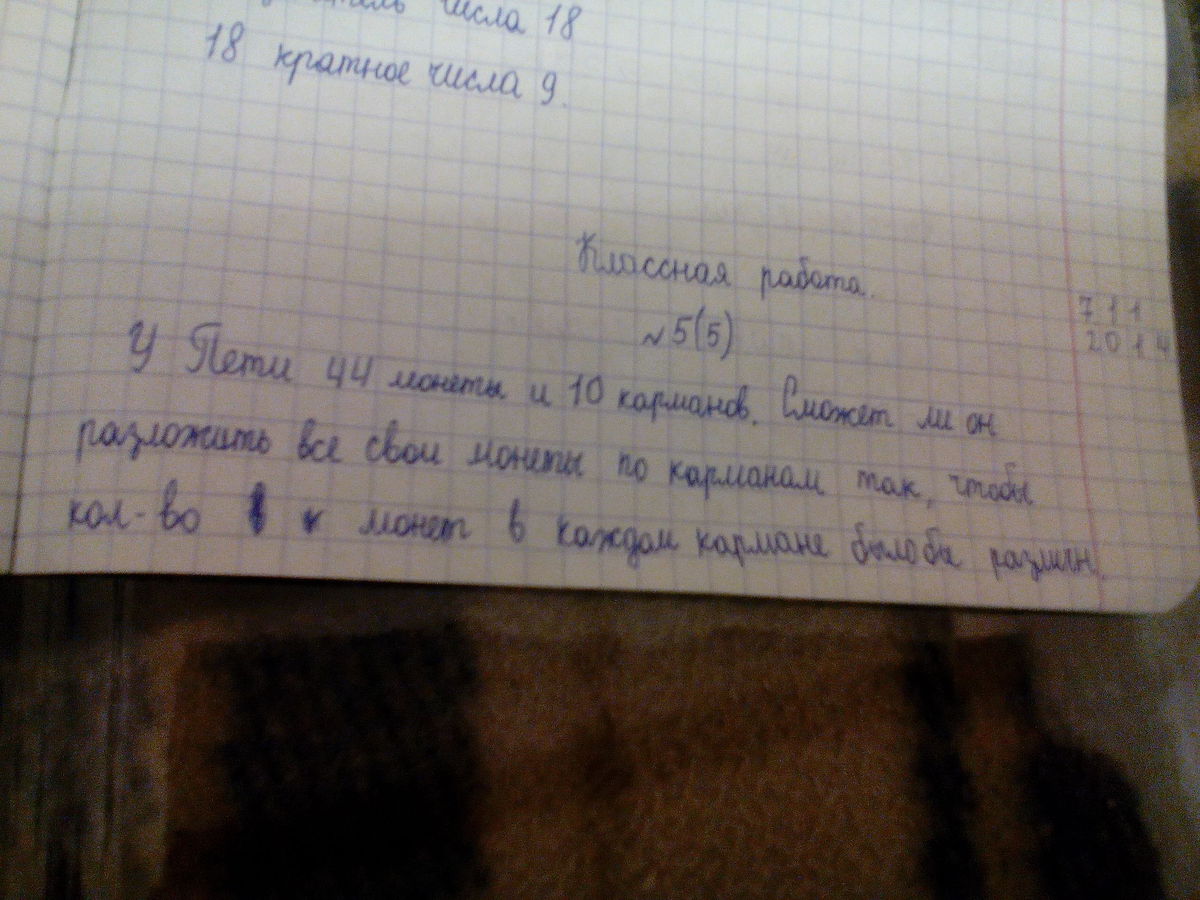 числа 18
18 кратное числа 9.
Классная работа.
7 1 1
№5(5)
20 14
У Пети 44 монеты и 10 карманов. Сможет ли он
разложить все свои монеты по карманам так, чтобы
кол-во монет в каждом кармане было бы различн.